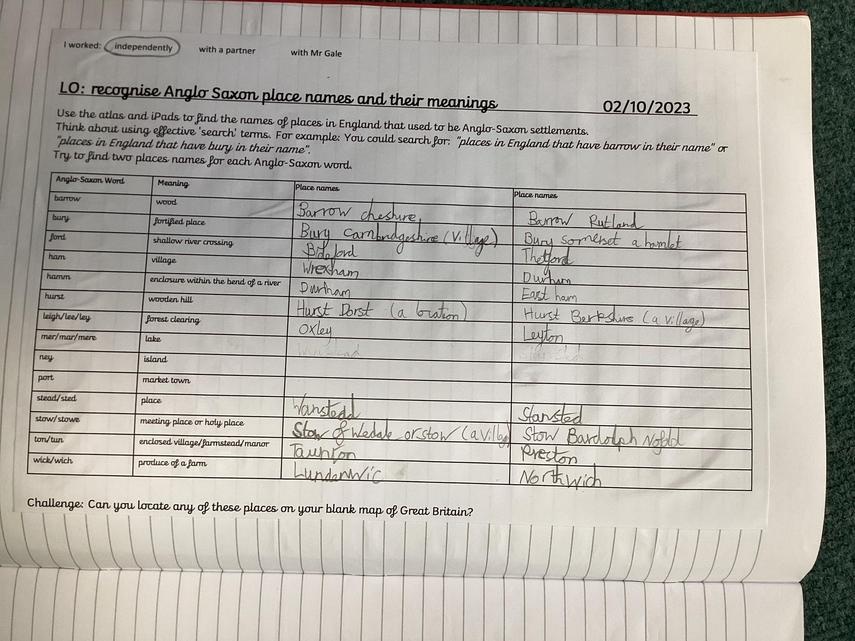 I worked: independently with a partner with Mr Gale
LO: recognise Anglo Saxon place names and their meanings 02/10/2023
Use the atlas and iPads to find the names of places in England that used to be Anglo-Saxon settlements.
Think about using effective 'search' terms. For example: You could search for: "places in England that have barrow in their name" or
"places in England that have bury in their name".
Try to find two places names for each Anglo-Saxon word.
Anglo-Saxon Word Meaning Place names Place names
barrow wood Barrow cheshire, Barrow Rutland
bury fortified place Bury Cambridgeshire (Village) Bury somerset a hamlet
ford shallow river crossing Bideford Thetford
ham village Wrexham Durham
hamm enclosure within the bend of a river Durham East ham
hurst wooden hill Hurst Dorst (a location) Hurst Berkshire (a village)
leigh/lee/ley forest clearing Oxley Leyton
mer/mar/mere lake
ney island
port market town
stead/sted place Wanstedd Stansted
stow/stowe meeting place or holy place Stow of Wedale or stow (a village Stow Bardolph
ton/tun enclosed village/farmstead/manor Taunton Preston
wick/wich produce of a farm Lundenwic Northwich
Challenge: Can you locate any of these places on your blank map of Great Britain?